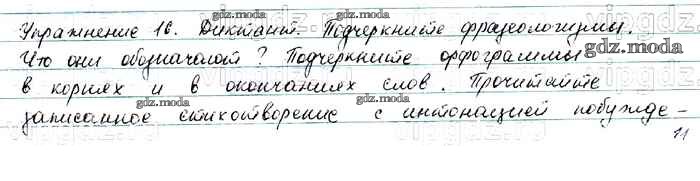 Упражнение 16. Диктант. Подчеркните фразеологизмы.
Что они обозначают? Подчеркните орфограммы
gdz.moda
в корнях и в окончаниях слов. Прочитайте
gdz.moda
gdz.moda
gdz.moda
записанное стихотворение с интонацией побужде-
11